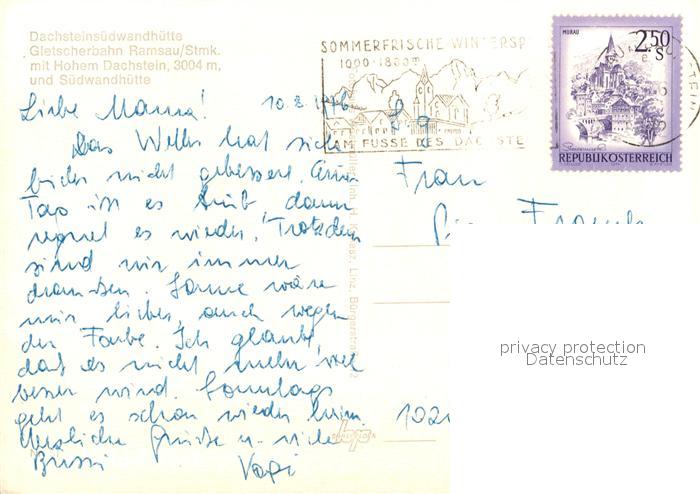 Dachsteinsüdwandhütte
Gletscherbahn Ramsau/Stmk.
mit Hohem Dachstein, 3004 m,
und Südwandhütte
SOMMERFRISCHE WINTERSP
1000-1800 m
AM FUSSE DES DACHSTE
MURAU
2.50
S
REPUBLIK ÖSTERREICH
Liebe Mamma! 10.8.1976
Das Wetter hat sich
leider nicht gebessert. Einen
Tag ist es trüb dann
regnet es wieder. Trotzdem
sind wir immer
draussen. Sonne wäre
mir lieber, auch wegen
der Farbe. Ich glaube,
daß es nicht mehr viel
besser wird. Sonntags
geht es schon wieder heim.
Herzliche Grüsse u. viele
Bussi
Frau
102
Linz, Bürgerstraße
privacy protection
Datenschutz